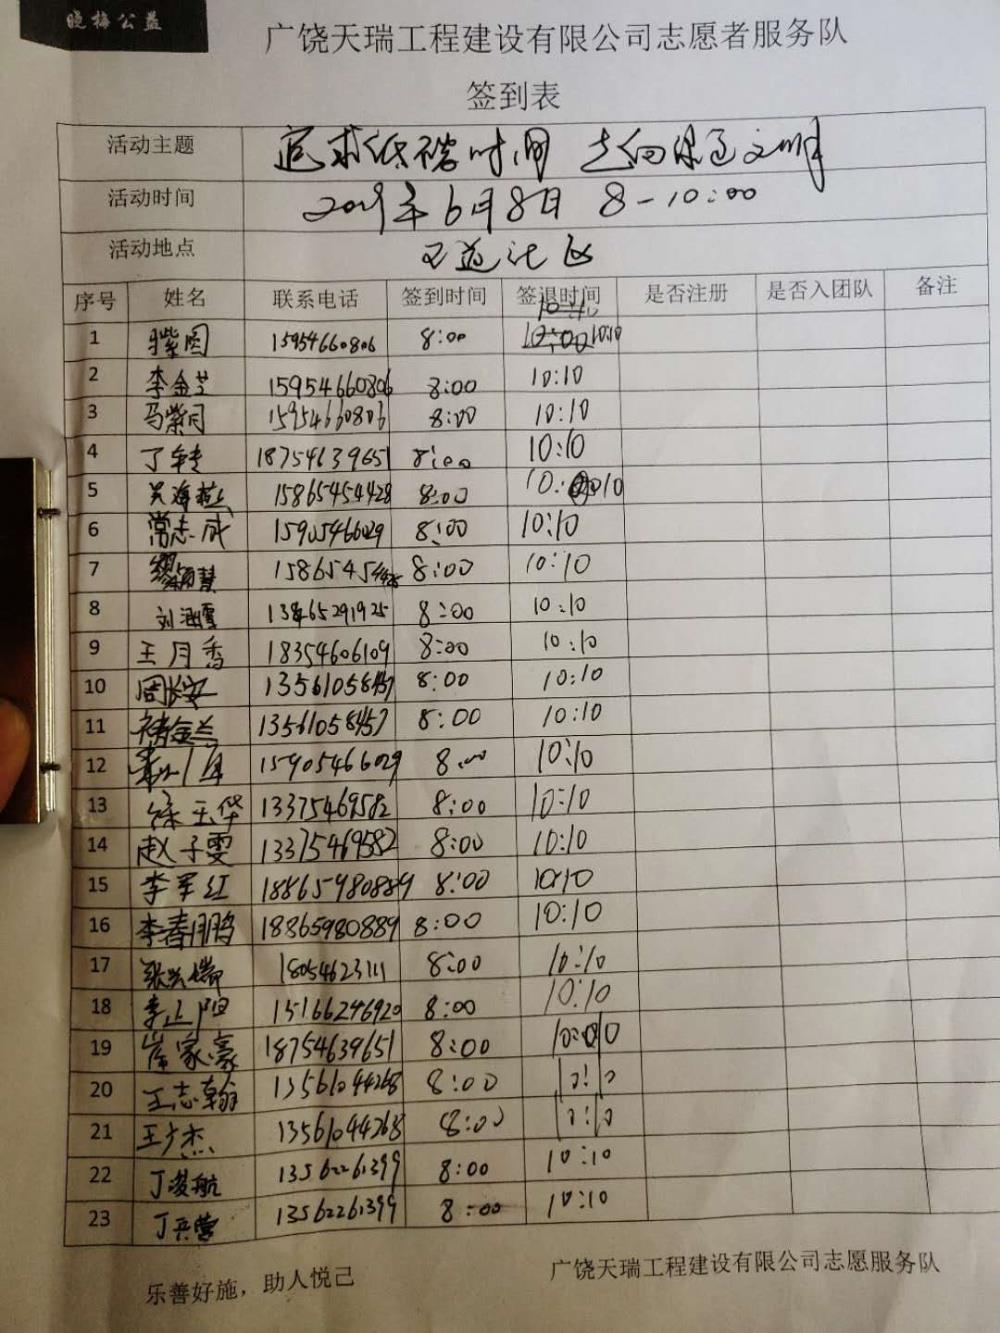 晓梅公益
广饶天瑞工程建设有限公司志愿者服务队
签到表
活动主题 追求低碳时间 走向绿色文明
活动时间 2019年6月8日 8-10:00
活动地点 社区
序号 姓名 联系电话 签到时间 签退时间 是否注册 是否入团队 备注
1 15954660806 8:00 10:10
2 李金芝 15954660806 8:00 10:10
3 马紫 15954660806 8:00 10:10
4 丁 18754639651 8:00 10:10
5 吴海燕 15865454428 8:00 10:10
6 常志成 15905466029 8:00 10:10
7 慧 8:00 10:10
8 刘 13465291925 8:00 10:10
9 王月香 18354606109 8:00 10:10
10 13561058457 8:00 10:10
11 褚金兰 13561058457 8:00 10:10
12 15905466029 8:00 10:10
13 徐玉华 13375469582 8:00 10:10
14 赵子雯 13375469582 8:00 10:10
15 李军红 18865980889 8:00 10:10
16 李春鹏 18865980889 8:00 10:10
17 张瑞 18054623111 8:00 10:10
18 李正阳 15166246920 8:00 10:10
19 崔家豪 18754639651 8:00 10:10
20 王志翰 13561044268 8:00 10:10
21 王杰 13561044268 8:00 10:10
22 丁浚航 13562261399 8:00 10:10
23 丁兵营 13562261399 8:00 10:10
乐善好施，助人悦己 广饶天瑞工程建设有限公司志愿服务队